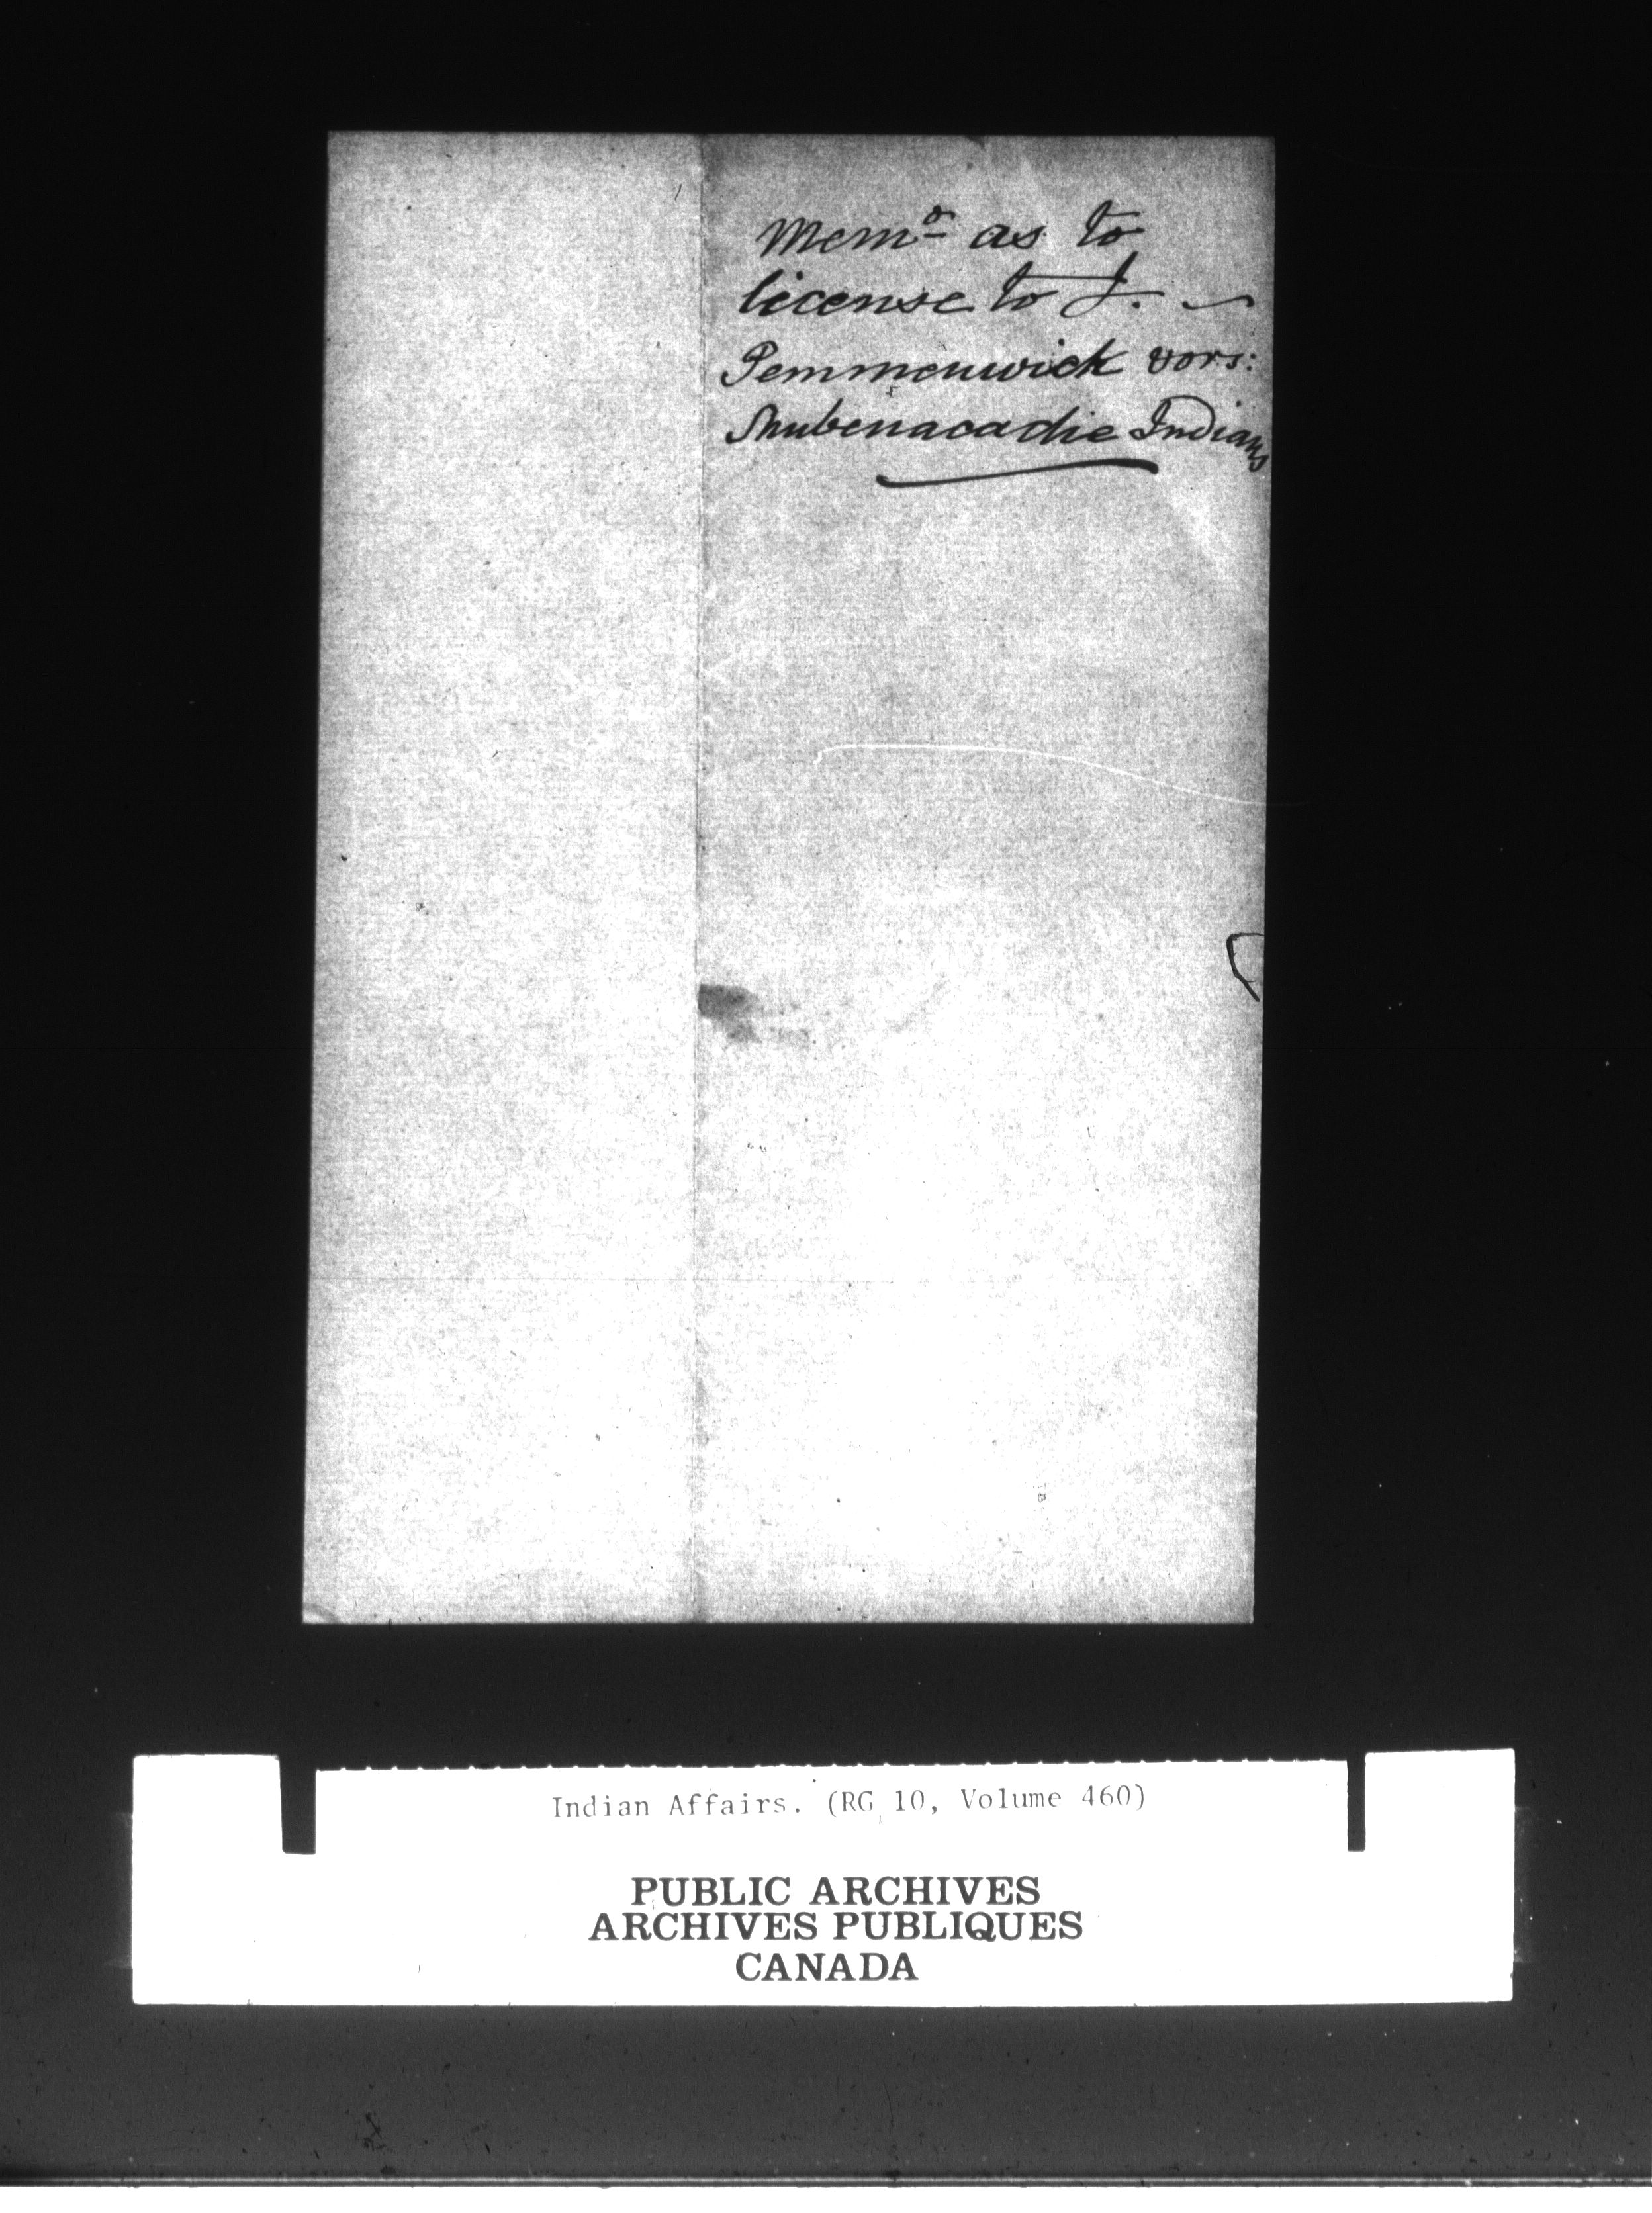 Memo as to
license to J.
Pemmenwick vors:
Shubenacadie Indians
Indian Affairs. (RG 10, Volume 460)
PUBLIC ARCHIVES
ARCHIVES PUBLIQUES
CANADA